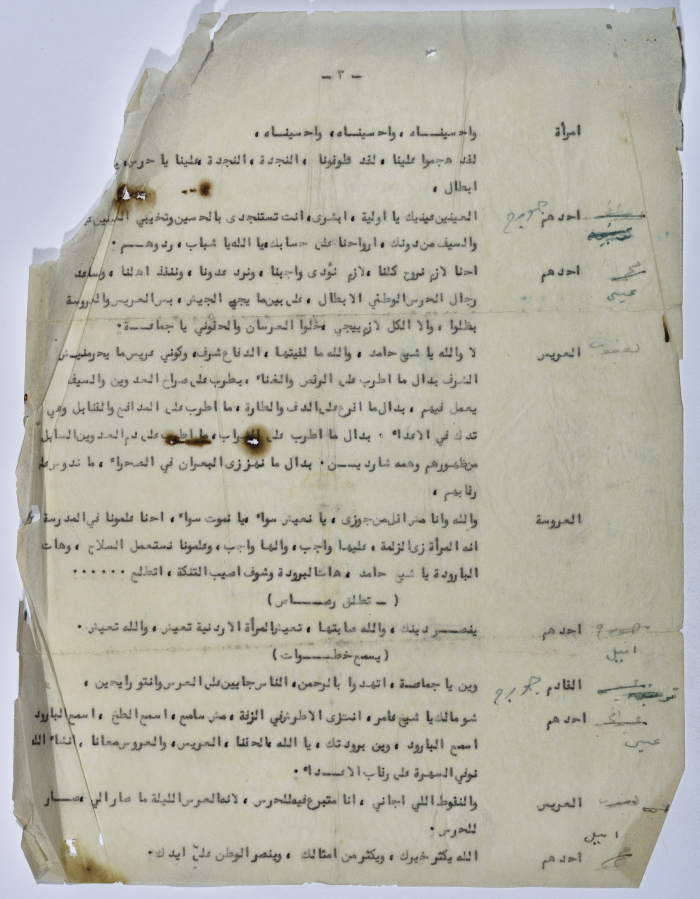 - ٣ -
امرأة واحسينـــاه ، واحسينـاه ، واحسينـاه ،
لقد هجموا علينا ، لقد طوقونا ، النجدة ، النجدة علينا يا حرس، يا
ابطال .
احدهم جورج العينين عينيك يا اولية ، ابشرى، انت تستنجدى بالحسين وتخيبي الحسين
والسيف من دونك ، ارواحنا على حسابك، يا الله يا شباب ، ردوهـــم .
احدهم احنا لازم نروح كلنا ، لازم نؤدى واجبنا ، ونرد عدونا ، وننقذ اهلنا ، ونساعد
عيسى رجال الحرس الوطني الابطال ، على بين ما يجي الجيش ، بس العريس والعروسة
يظلوا ، والا الكل لازم ييجي ، خلوا العرسان والحقوني يا جماعـــة .
العريس لا والله يا شيخ حامد ، والله ما لقيتها ، الدفاع شرف، وكوني عريس ما يحرمنيش
الشرف بدال ما اطرب على الرقص والغناء ، بطرب على صراخ العدوين والسيف
يعمل فيهم ، بدال ما افرح على الدف والطارة ، ما اطرب على المدافع والقنابل وهي
تدك في الاعداء ، بدال ما اطرب على ، ما اطرب على دم العدوين السايل
من ظهورهم وهمه شارديـــن . بدال ما نهز زى البعران في الصحراء ، ما ندوس على
رقابهم .
العروسة والله وانا مش اقل من جوزى ، يا نعيش سواء ، يا نموت سواء ، احنا علمونا في المدرسة
انه المرأة زى الزلمة ، عليها واجب ، والها واجب ، وعلمونا نستعمل السلاح ، وهات
البارودة يا شيخ حامد ، هات البرودة وشوف اصيب التنكة ، اتطلع ......
( - تطلق رصـــاص )
احدهم ينصـــر دينك ، والله صابتها ، تعيش المرأة الاردنية تعيش ، والله تعيش .
اميل
(يسمع خطـــوات )
القادم جورج وين يا جماعـــة ، اتهدوا بالرحمن، الناس جايين على العرس وانتو رايحين ،
احدهم شو مالك يا شيخ عامر ، انت زى الاطرش في الزفة ، مش سامع ، اسمع الطخ ، اسمع البارود
عيسى اسمع البارود ، وين برودتك ، يا الله بالحقنا ، العريس، والعروس معانا ، انشاء الله
نوفي السهرة على رقاب الاعـــداء .
العريس والنقوط اللي اجاني ، انا متبرع فيه للحرس ، لانه العرس الليلة ما صار الي ، صـــار
للحرس .
اميل
احدهم الله يكثر خيرك ، ويكثر من امثالك ، وينصر الوطن على ايدك .